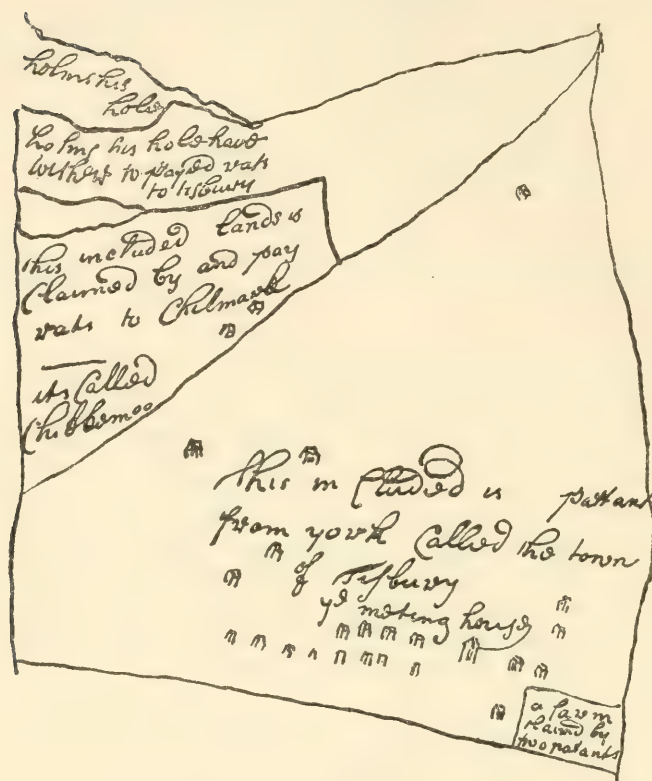 holms his
hole
holms his hole have
withers to payed rats
to tisbury
this included lands is
Claimed by and pay
rats to Chilmark
its Called
Chikkemoo
this in Cluded is pattant
from york Called the town
of Tisbury
ye meting house
a farm
claimed by
two patants